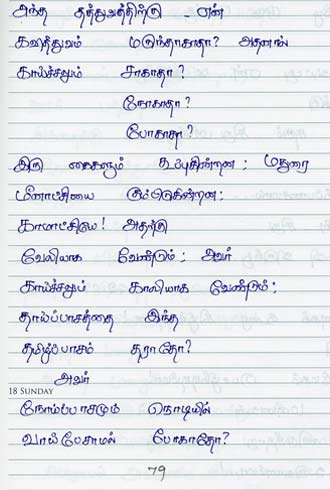 அந்த தத்துவத்திற்கு - என்
கவித்துவம் மருந்தாகாதா? அதனால்
காய்ச்சலும் சாகாதா?
நோகாதா?
போகாதா?
இரு கைகளும் கூப்புகின்றன; மதுரை
மீனாட்சியை கும்பிடுகின்றன;
காமாட்சியே! அதற்கு
வேலியாக வேண்டும்; அவர்
காய்ச்சலும் காலியாக வேண்டும்;
தாய்ப்பாசத்தை இந்த
தமிழ்ப்பாசம் தராதோ?
அவர்
18 SUNDAY
நோய்ப்பாசமும் நொடியில்
வாய்பேசாமல் போகாதோ?
79